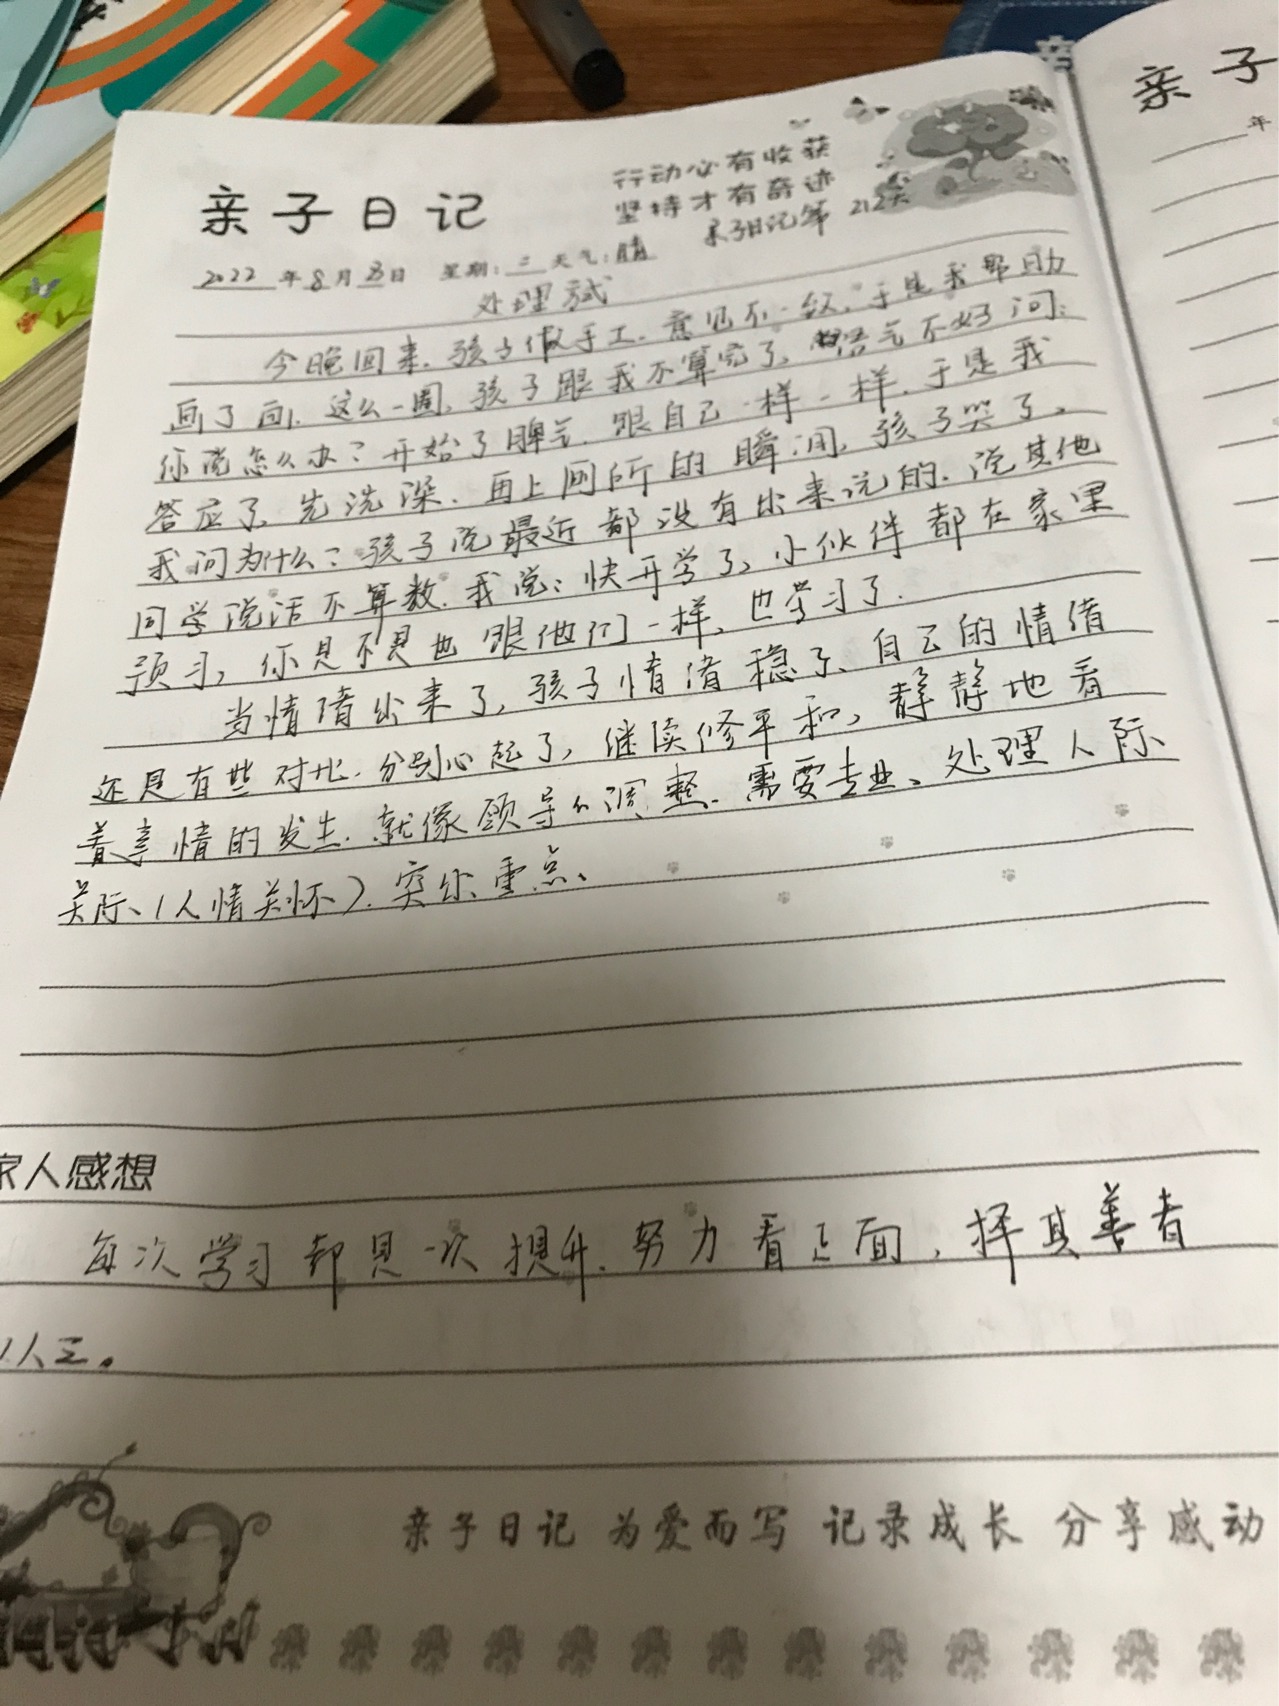 亲子日记
行动必有收获
坚持才有奇迹
亲子日记第 212天
2022 年 8 月 23 日 星期: 二 天气: 晴
处理
今晚回来, 孩子做手工, 意见不一致, 于是我帮助
画了画, 这么一周, 孩子跟我不算完了, 语气不好问:
你说怎么办? 开始了脾气, 跟自己一样一样, 于是我
答应了, 先洗澡, 再上厕所的瞬间, 孩子哭了,
我问为什么? 孩子说最近都没有出来说的, 说其他
同学说话不算数, 我说: 快开学了, 小伙伴都在家里
预习, 你是不是也跟他们一样, 也学习了.
当情绪出来了, 孩子情绪稳了, 自己的情绪
还是有些对比, 分别心起了, 继续修平和, 静静地看
着事情的发生, 就像领导的调整, 需要专业、处理人际
关际、(人情关怀), 突出重点、
家人感想
每次学习都是一次提升, 努力看正面, 择其善者
亲子日记 为爱而写 记录成长 分享感动
亲子
年